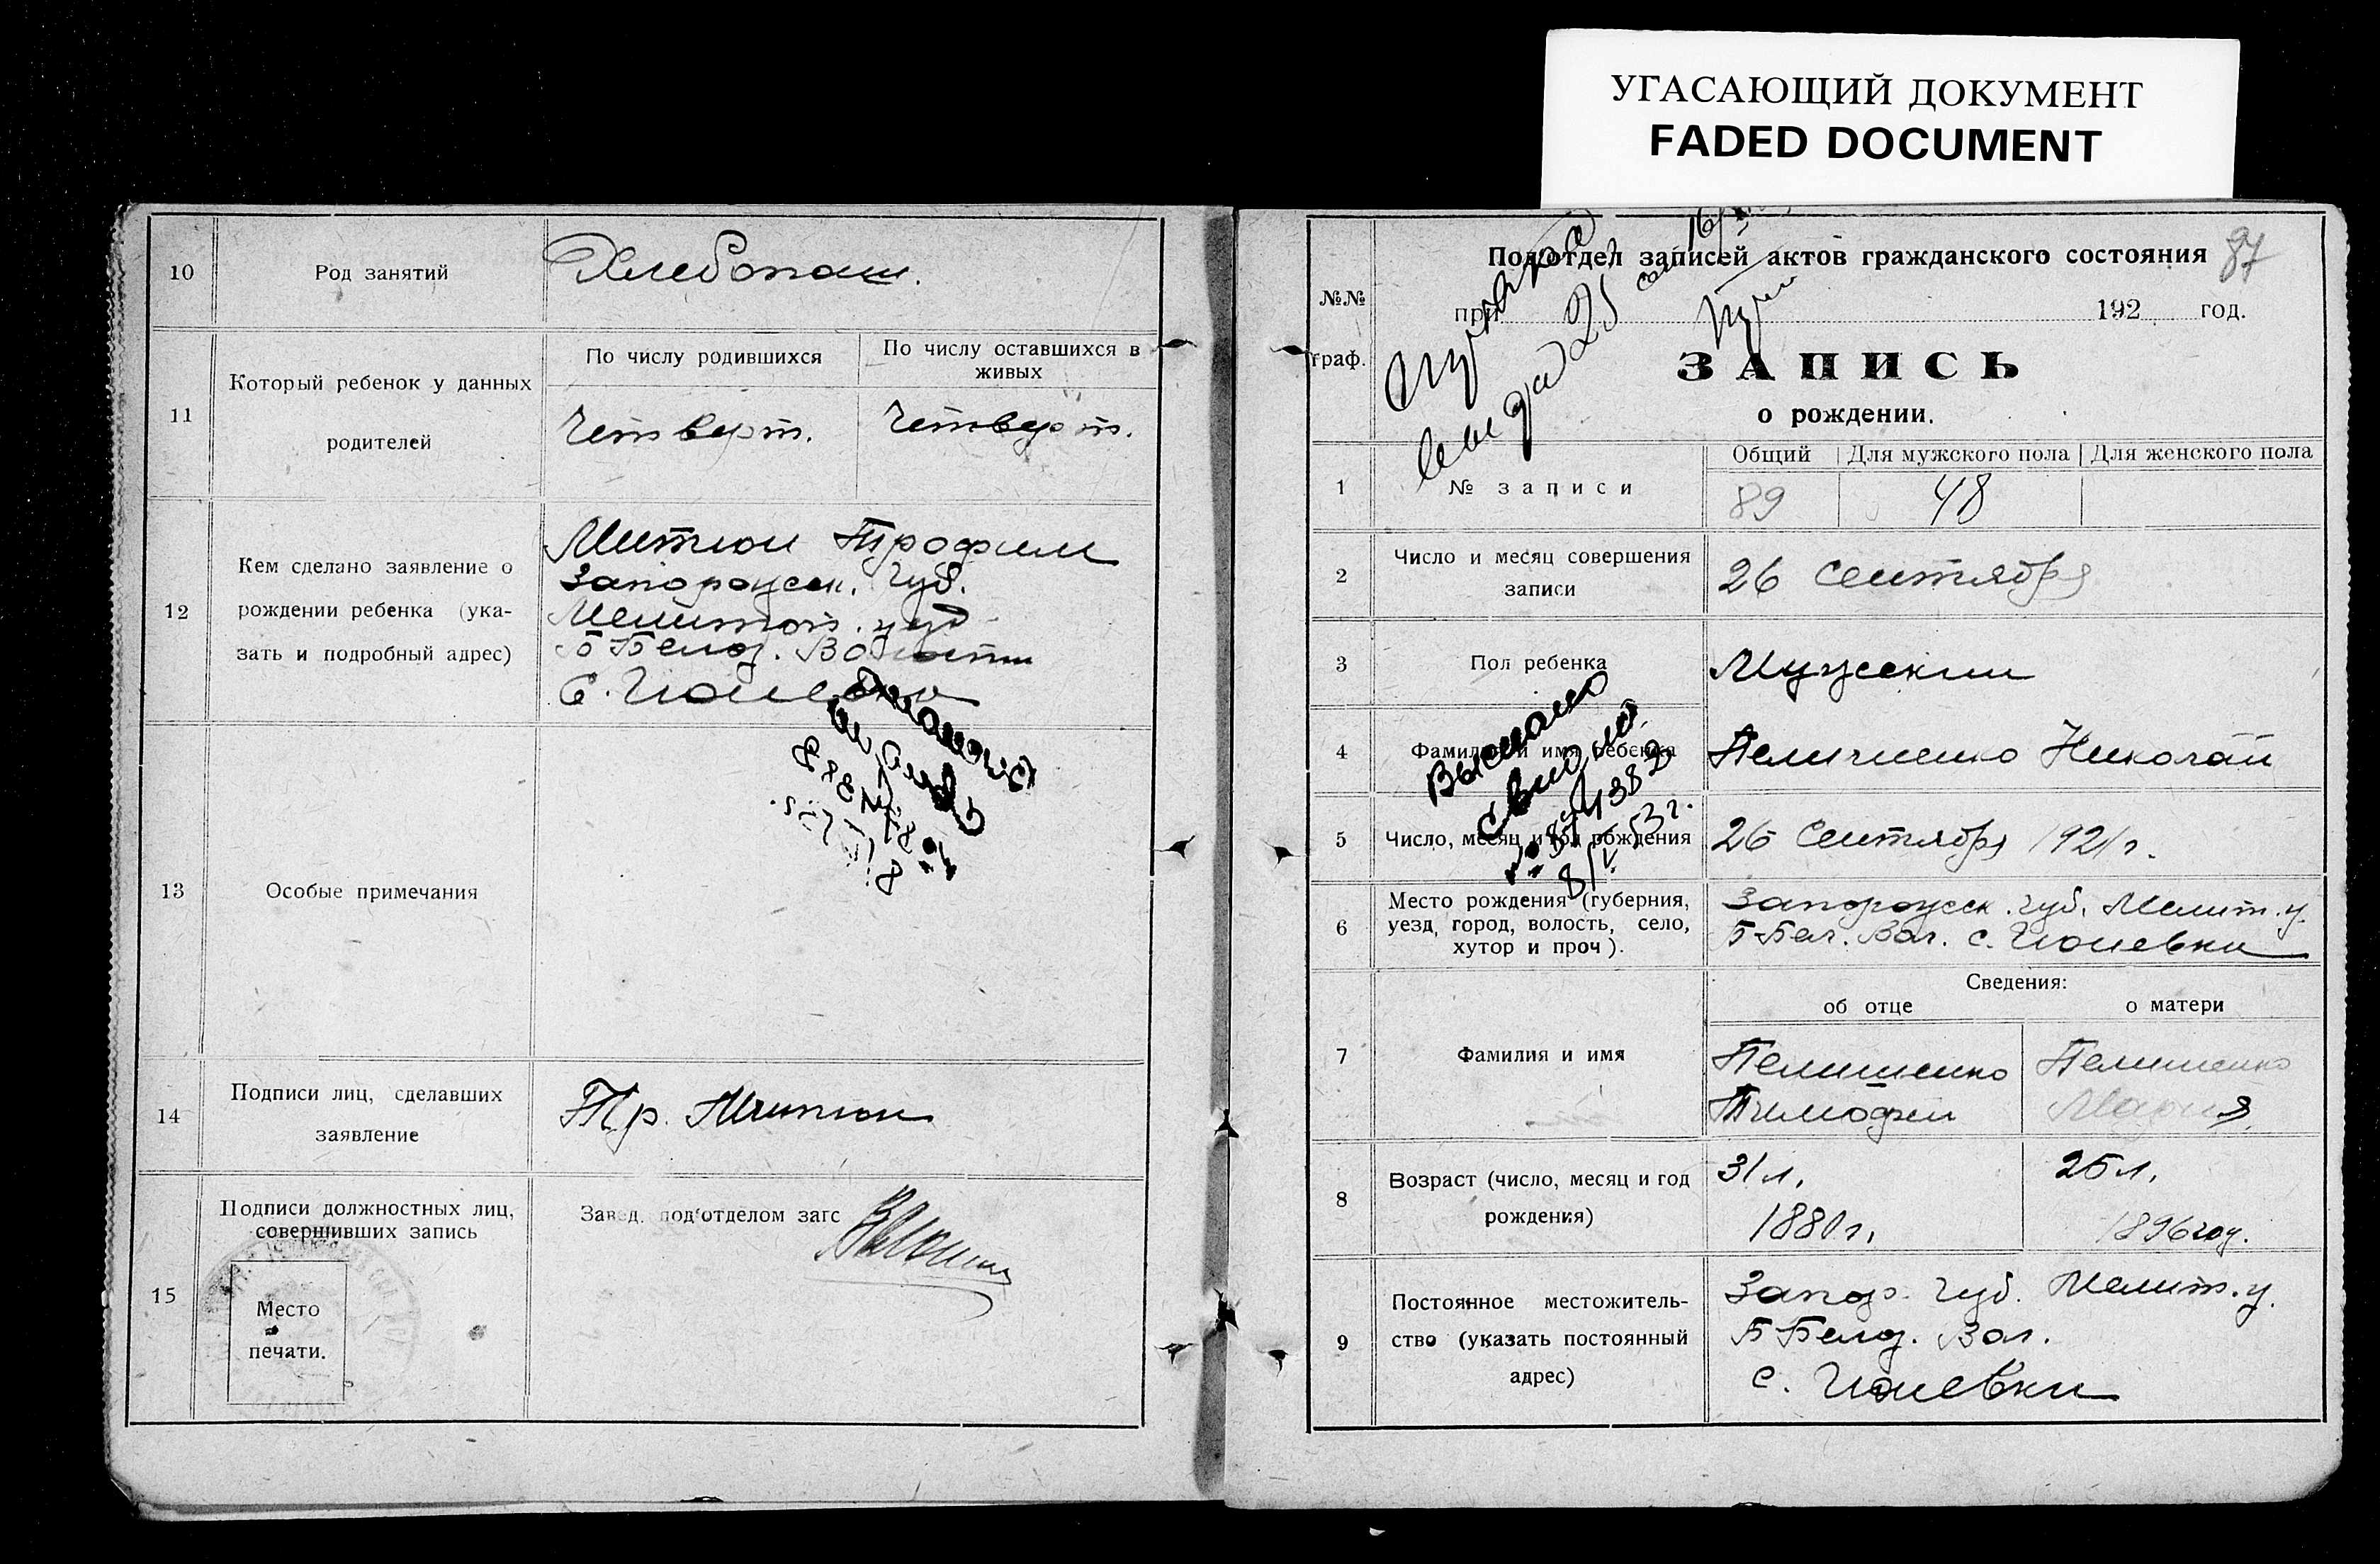 УГАСАЮЩИЙ ДОКУМЕНТ
FADED DOCUMENT
10
Род занятий
Хлебопаш.
11
Который ребенок у данных
родителей
По числу родившихся
По числу оставшихся в
живых
Четверт.
Четверт.
12
Кем сделано заявление о
рождении ребенка (ука-
зать и подробный адрес)
Митюн Трофим
Запорожск. Губ.
Мелитоп. уезд
Б-Белоз. Волости
С.
13
Особые примечания
14
Подписи лиц, сделавших
заявление
Тр. Митюн
15
Подписи должностных лиц,
совершивших запись
Завед. подотделом загс
Место
печати.
87
Подотдел записей актов гражданского состояния
№№
граф.
при
192 год.
ЗАПИСЬ
о рождении.
1
№ записи
Общий
Для мужского пола
Для женского пола
89
48
2
Число и месяц совершения
записи
26 Сентября
3
Пол ребенка
Мужский
4
Фамилия и имя ребенка
Николай
Выслано
свид
5
Число, месяц и год рождения
26 Сентября 1921 г.
8/V 53 г.
6
Место рождения (губерния,
уезд, город, волость, село,
хутор и проч).
Запорожск. губ. Мелит. у.
Б-Бел. Вол. с.
Сведения:
об отце
о матери
7
Фамилия и имя
Тимофей
Мария
8
Возраст (число, месяц и год
рождения)
31 л.
25 л.
1896 год.
9
Постоянное местожитель-
ство (указать постоянный
адрес)
Запор. Губ. Мелит. у.
Б-Белоз. Вол.
с.